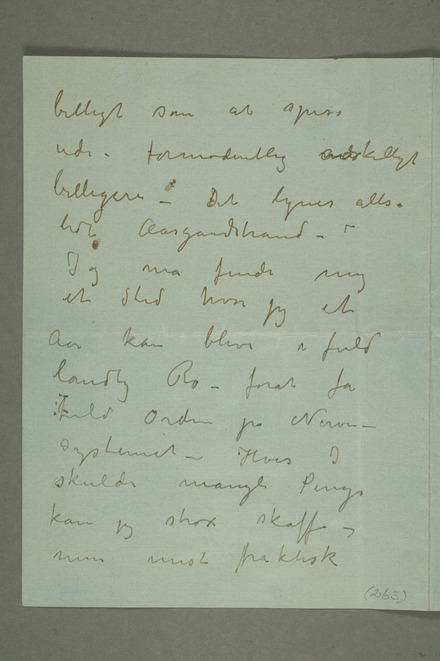 billigt som at spise
ude. formodentlig adskilligt
billigere – Det synes alts.
lidt Aasgaardstrand –
Jeg ma finde mig
et Sted hvor jeg et
Aar kan blive i fuld
landlig Ro – forat fa
Fuld Orden pa Nerve-
systemet – Hvis I
skulde mangle Penge
kan jeg strax skaffe –
men mest praktisk
(263)